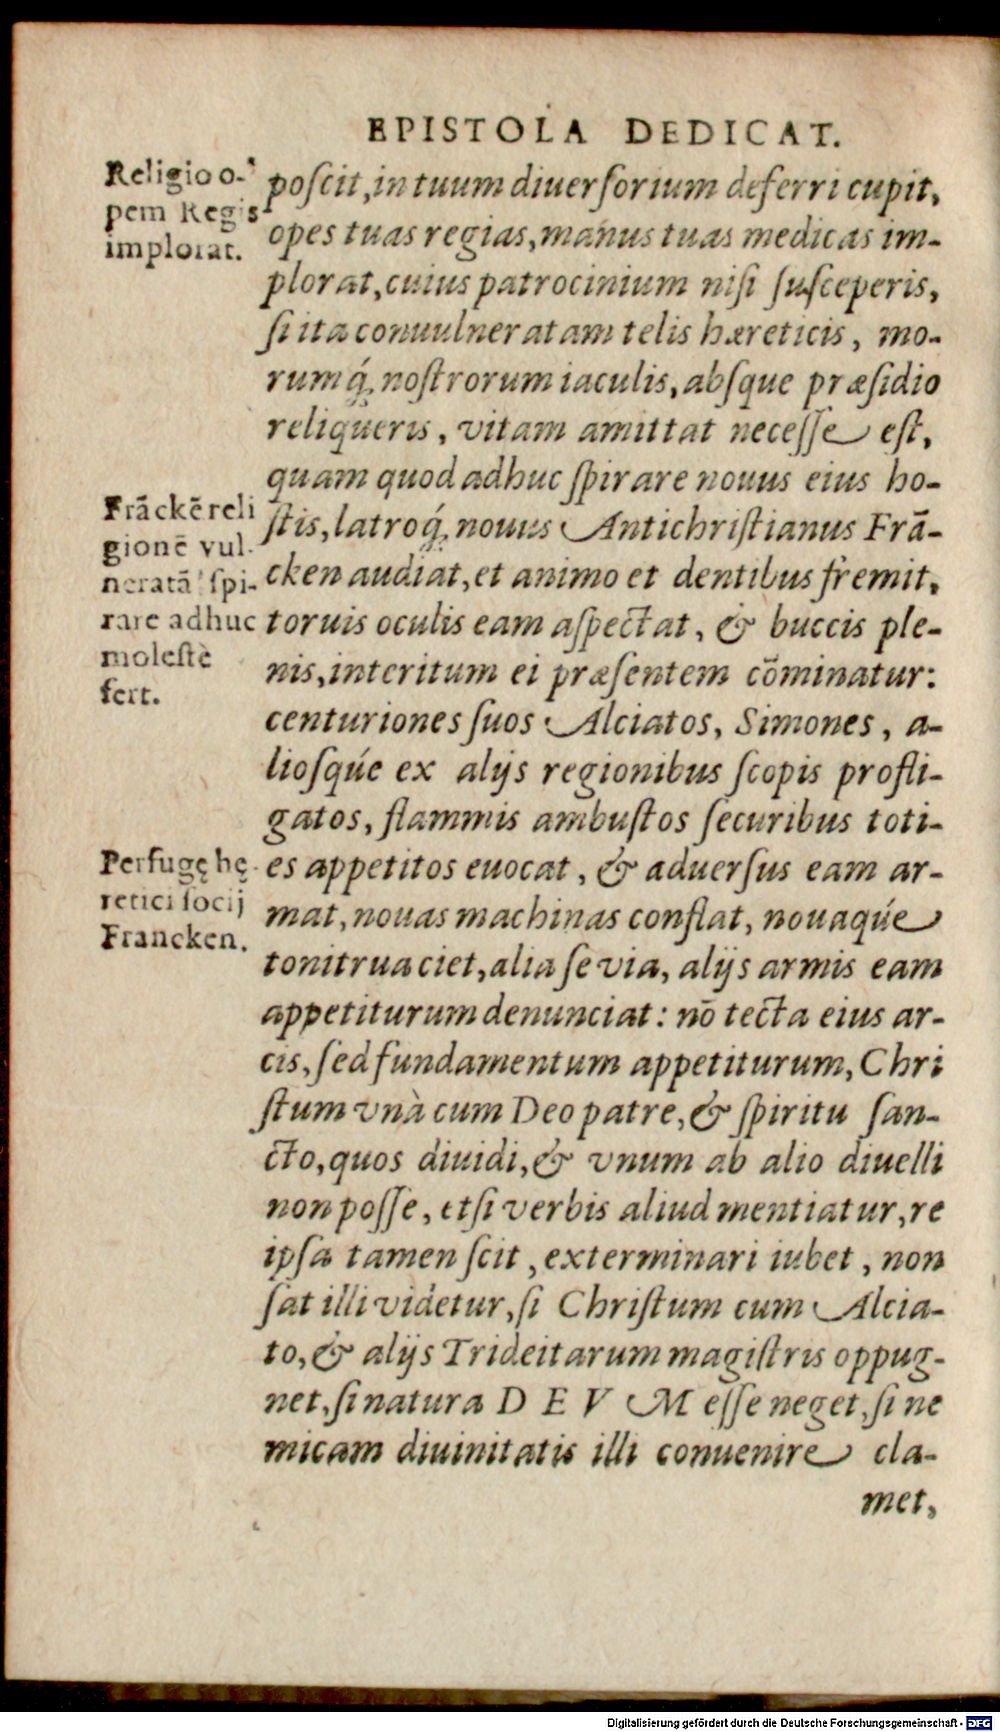 EPISTOLA DEDICAT.
Religio o-
pem Regis
implorat.
poscit, in tuum diuersorium deferri cupit,
opes tuas regias, manus tuas medicas im-
plorat, cuius patrocinium nisi susceperis,
si ita conuulneratam telis hæreticis, mo-
rumq́; nostrorum iaculis, absque præsidio
reliqueris, vitam amittat necesse est,
quam quod adhuc spirare nouus eius ho-
stis, latroq́; nouus Antichristianus Frā-
cken audiat, et animo et dentibus fremit,
toruis oculis eam aspectat, & buccis ple-
nis, interitum ei præsentem cōminatur:
centuriones suos Alciatos, Simones, a-
liosqúe ex alijs regionibus scopis profli-
gatos, flammis ambustos securibus toti-
es appetitos euocat, & aduersus eam ar-
mat, nouas machinas conflat, nouaqúe
tonitrua ciet, alia se via, alijs armis eam
appetiturum denunciat: nō tecta eius ar-
cis, sed fundamentum appetiturum, Chri
stum vnà cum Deo patre, & spiritu san-
cto, quos diuidi, & vnum ab alio diuelli
non posse, etsi verbis aliud mentiatur, re
ipsa tamen scit, exterminari iubet, non
sat illi videtur, si Christum cum Alcia-
to, & alijs Trideitarum magistris oppug-
net, si natura D E V M esse neget, si ne
micam diuinitatis illi conuenire cla-
met,
Frāckē reli
gionē vul-
neratā spi-
rare adhuc
molestè
fert.
Perfugę hę-
retici socij
Francken.
Digitalisierung gefördert durch die Deutsche Forschungsgemeinschaft - DFG